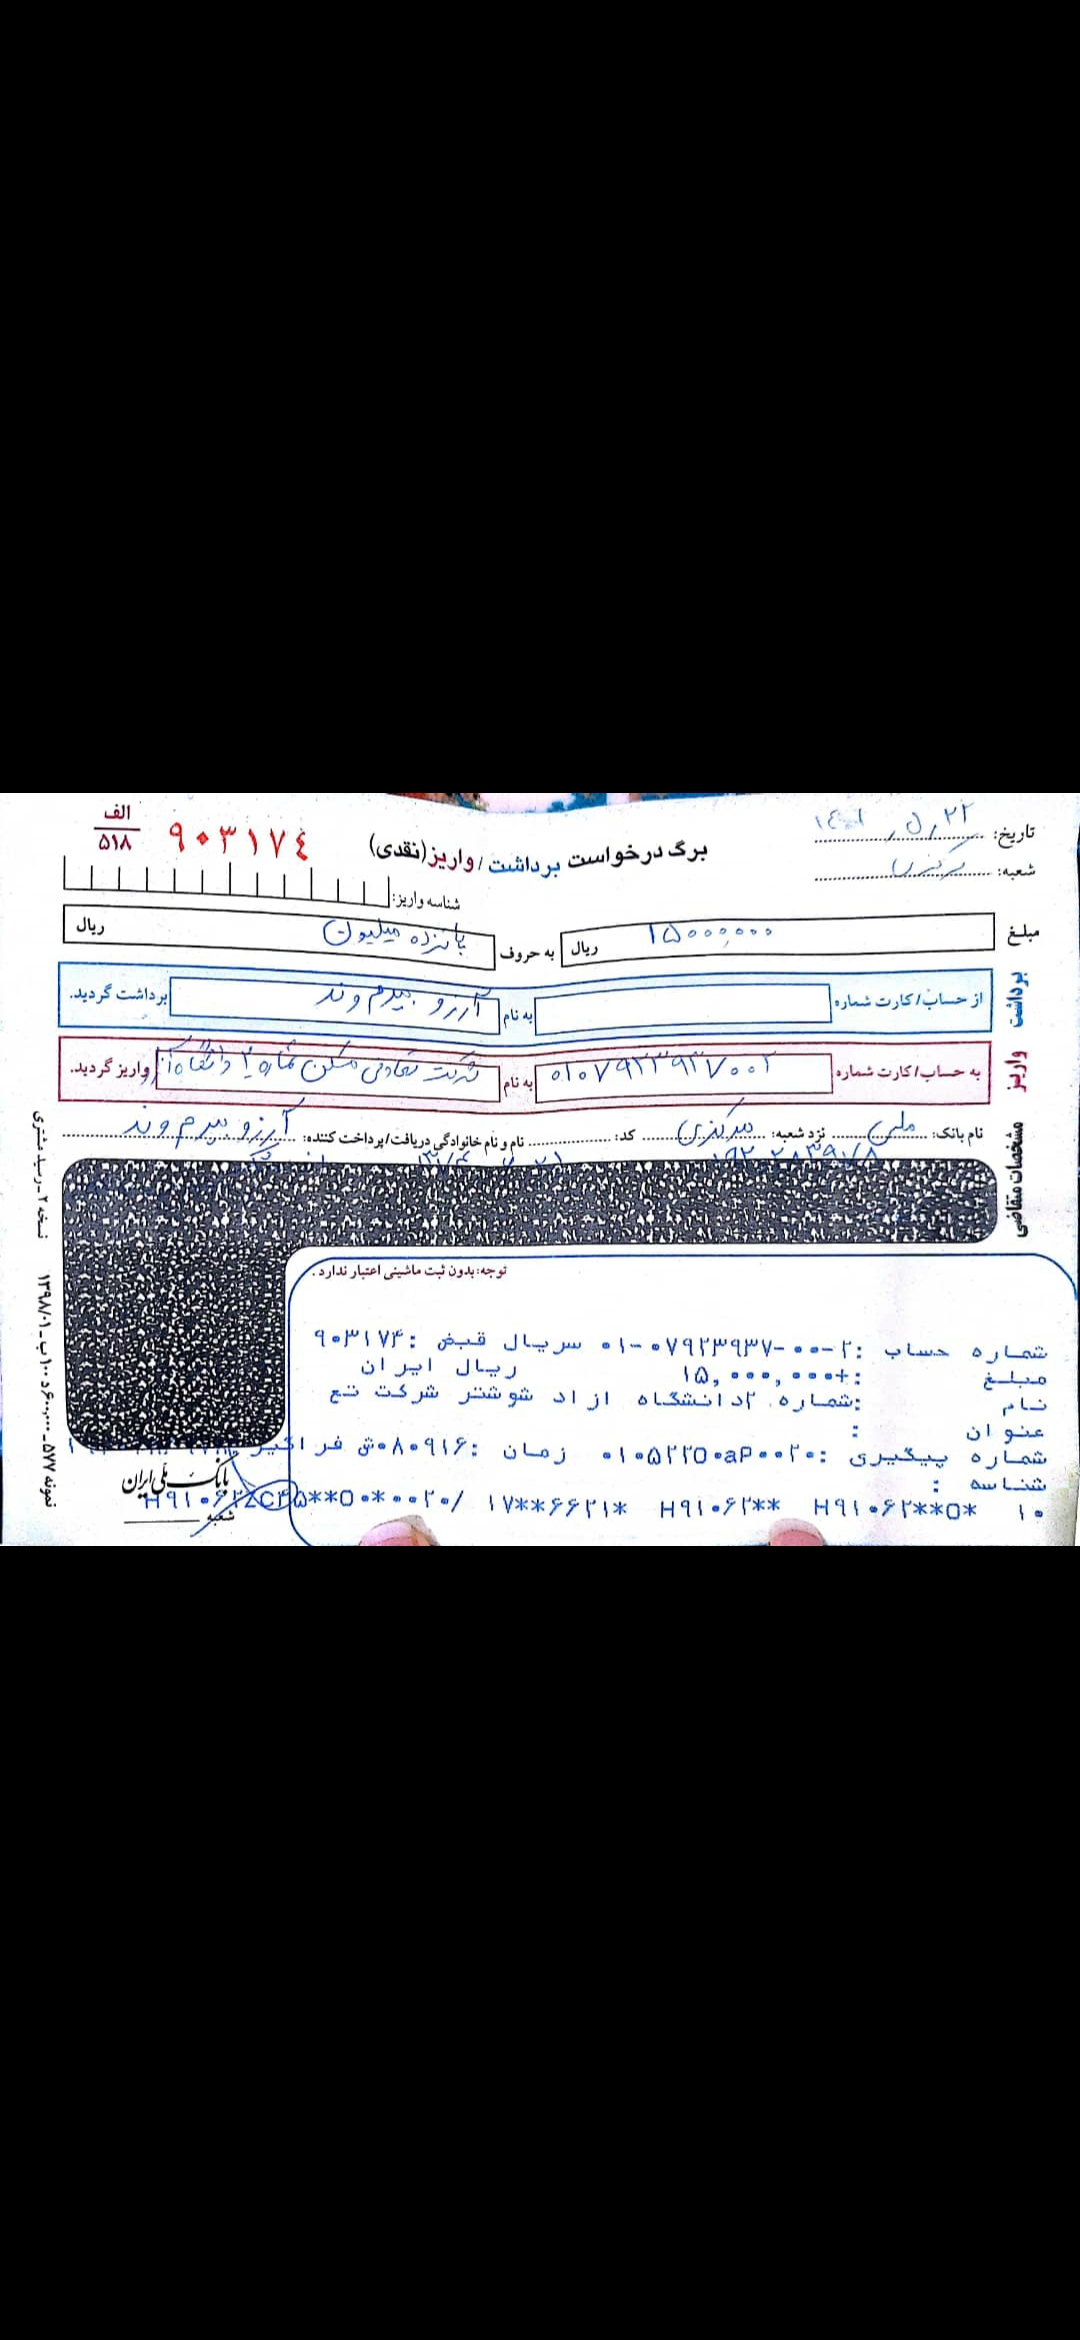 تاریخ: ۱۴۰۱,۵,۲۲
شعبه: مرکزی
برگ درخواست برداشت / واریز(نقدی)
۹۰۳۱۷۴
الف
۵۱۸
شناسه واریز:
مبلغ ۱۵۰۰۰,۰۰۰ ریال به حروف پانزده میلیون ریال
برداشت
از حساب/ کارت شماره به نام آرزو بیرم وند برداشت گردید.
واریز
به حساب/ کارت شماره ۰۱۰۷۹۲۳۹۳۷۰۰۲ به نام شرکت تعاونی مسکن شماره ۲ دانشگاه آزاد واریز گردید.
مشخصات متقاضی
نام بانک: ملی نزد شعبه: مرکزی کد: نام و نام خانوادگی دریافت/پرداخت کننده: آرزو بیرم وند
توجه: بدون ثبت ماشینی اعتبار ندارد.
شماره حساب :۲-۰۰-۰۷۹۲۳۹۳۷-۰۱ سریال قبض :۹۰۳۱۷۴
مبلغ :+۱۵,۰۰۰,۰۰۰ ریال ایران
نام :شماره ۲دانشگاه ازاد شوشتر شرکت تع
عنوان :
شماره پیگیری :۰۱۰۵۲۲O۰aP۰۰۲۰ زمان :۰۸۰۹۱۶ش فراگیر
شناسه :
۱۰ H۹۱۰۶۲**O* H۹۱۰۶۲** ۱۷**۶۶۲۱*
بانک ملی ایران
شعبه
نمونه ۵۷۷ ـ ۶۰۰,۰۰۰ د ۱۰۰ ب ـ ۱۳۹۸/۰۱ نسخه ۲ ـ رسید مشتری